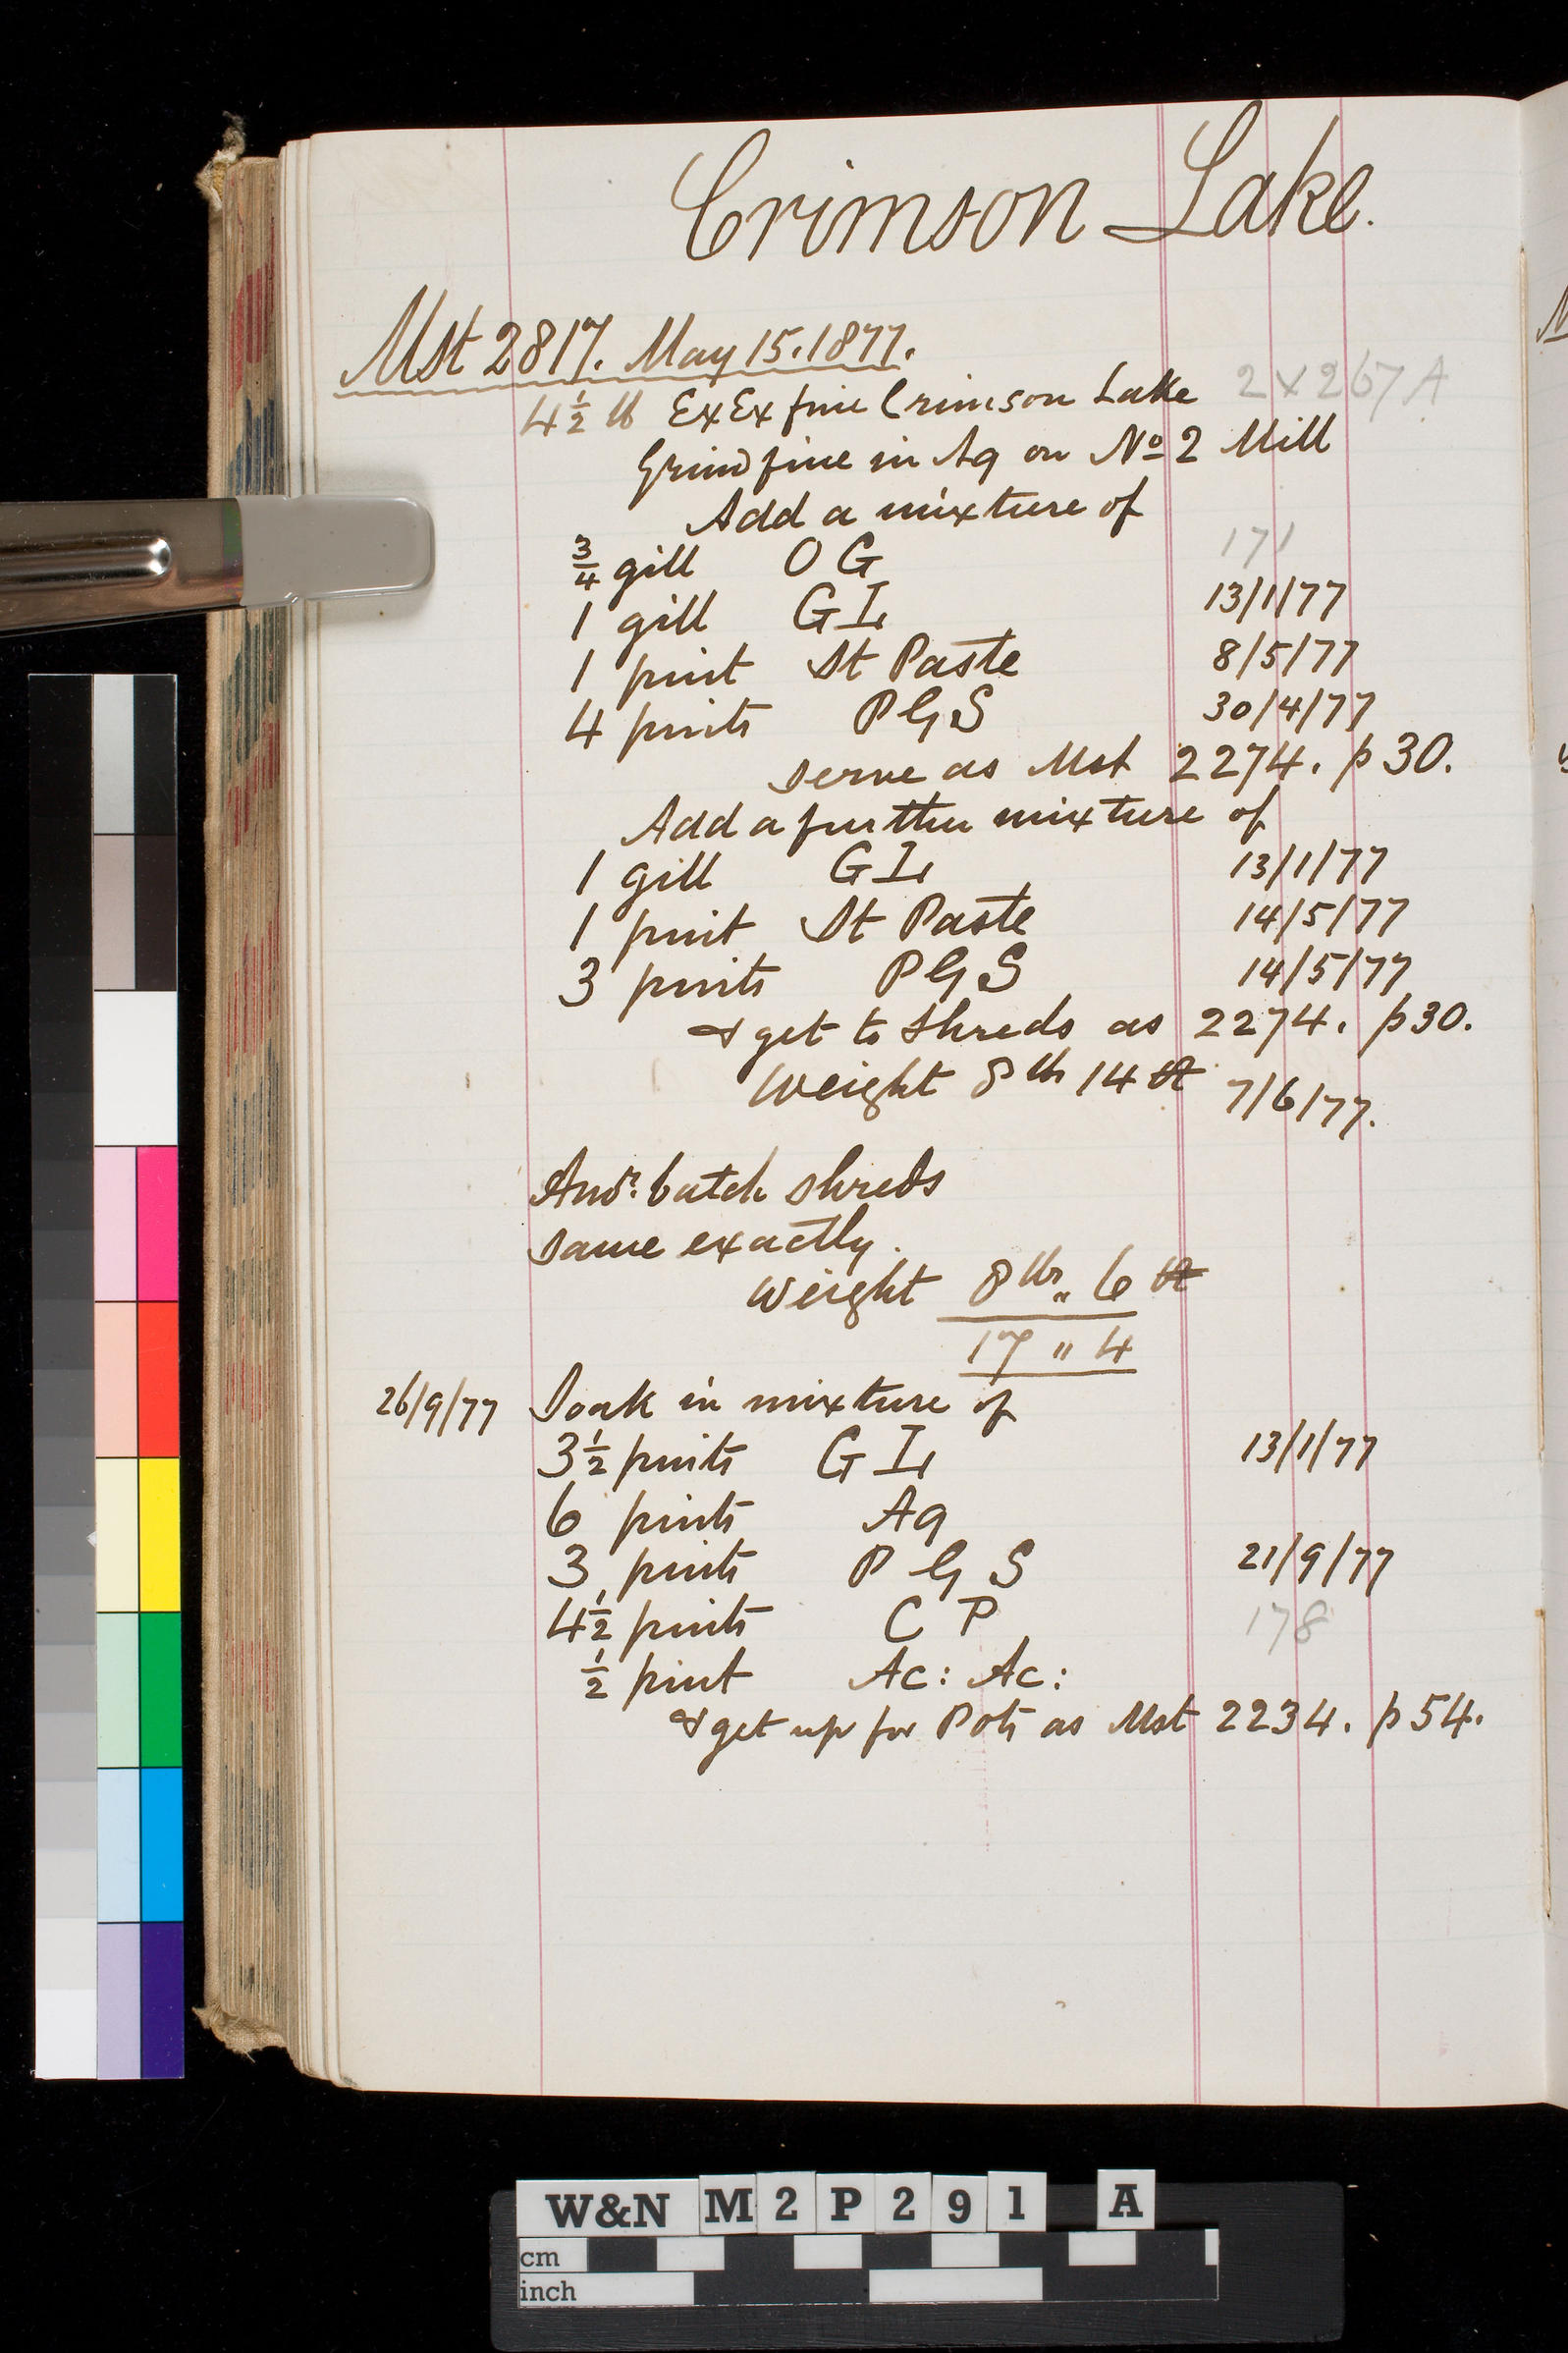 Crimson Lake.
Mst 2817. May 15. 1877.
4½ lb Ex Ex fine Crimson Lake 2 x 267 A
Grind fine in Aq on No 2 Mill
Add a mixture of
¾ gill O G 171
1 gill G L 13/1/77
1 pint St Paste 8/5/77
4 pints P G S 30/4/77
serve as Mst 2274. p 30.
Add a further mixture of
1 gill G L 13/1/77
1 pint St Paste 14/5/77
3 pints P G S 14/5/77
& get to shreds as 2274. p 30.
Weight 8 lb 14 7/6/77.
Anor. batch shreds
same exactly.
Weight 8 lbs " 6
17 " 4
26/9/77 Soak in mixture of
3½ pints G L 13/1/77
6 pints Aq
3 pints P G S 21/9/77
4½ pints C P 178
½ pint Ac: Ac:
& get up for Pots as Mst 2234. p 54.
W&N M2P291 A
cm
inch